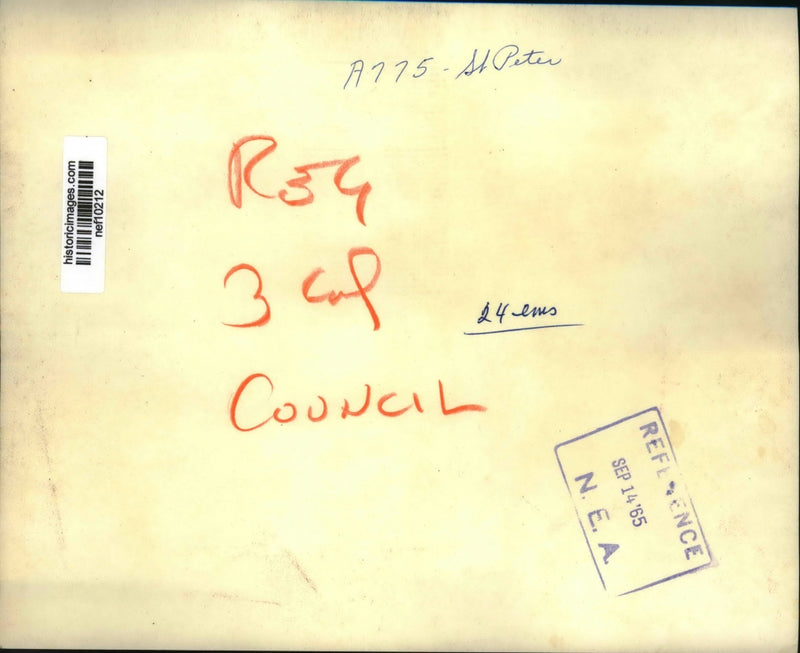 A775 - St Peter
historicimages.com
nef10212
3 Col
24 ems
COUNCIL
REFERENCE
SEP 14 '65
N. E. A.